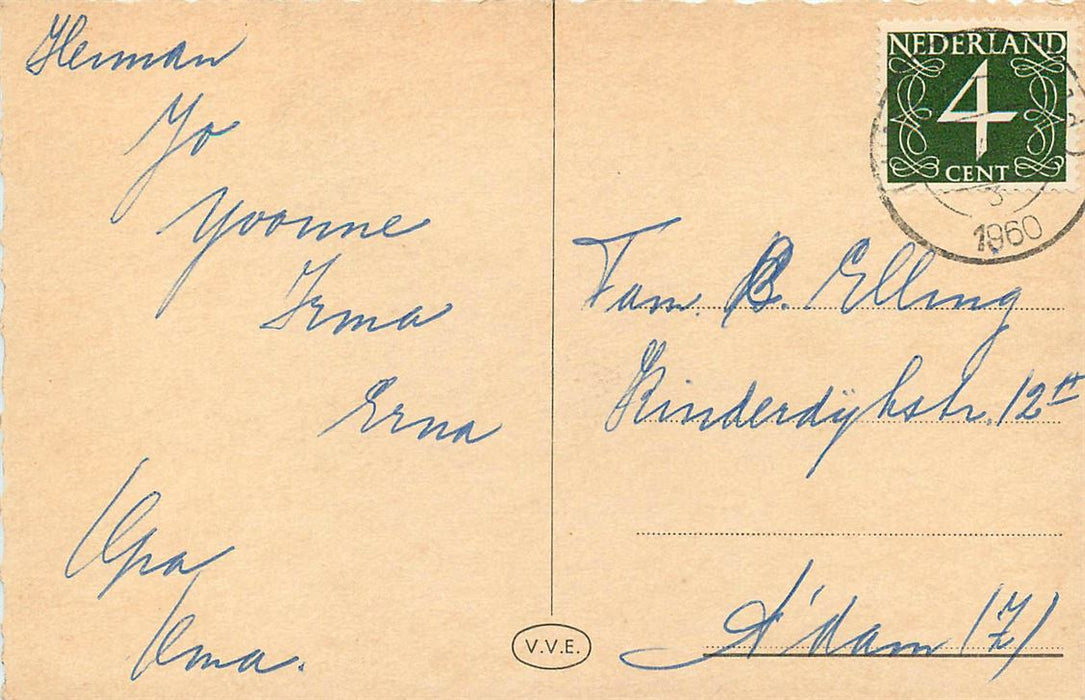 Herman
Jo
Yvonne
Irma
Erna
Opa
Oma.
NEDERLAND
4
CENT
3
1960
Fam. B. Elling
Kinderdijkstr. 12 II
A'dam (Z)
V.V.E.